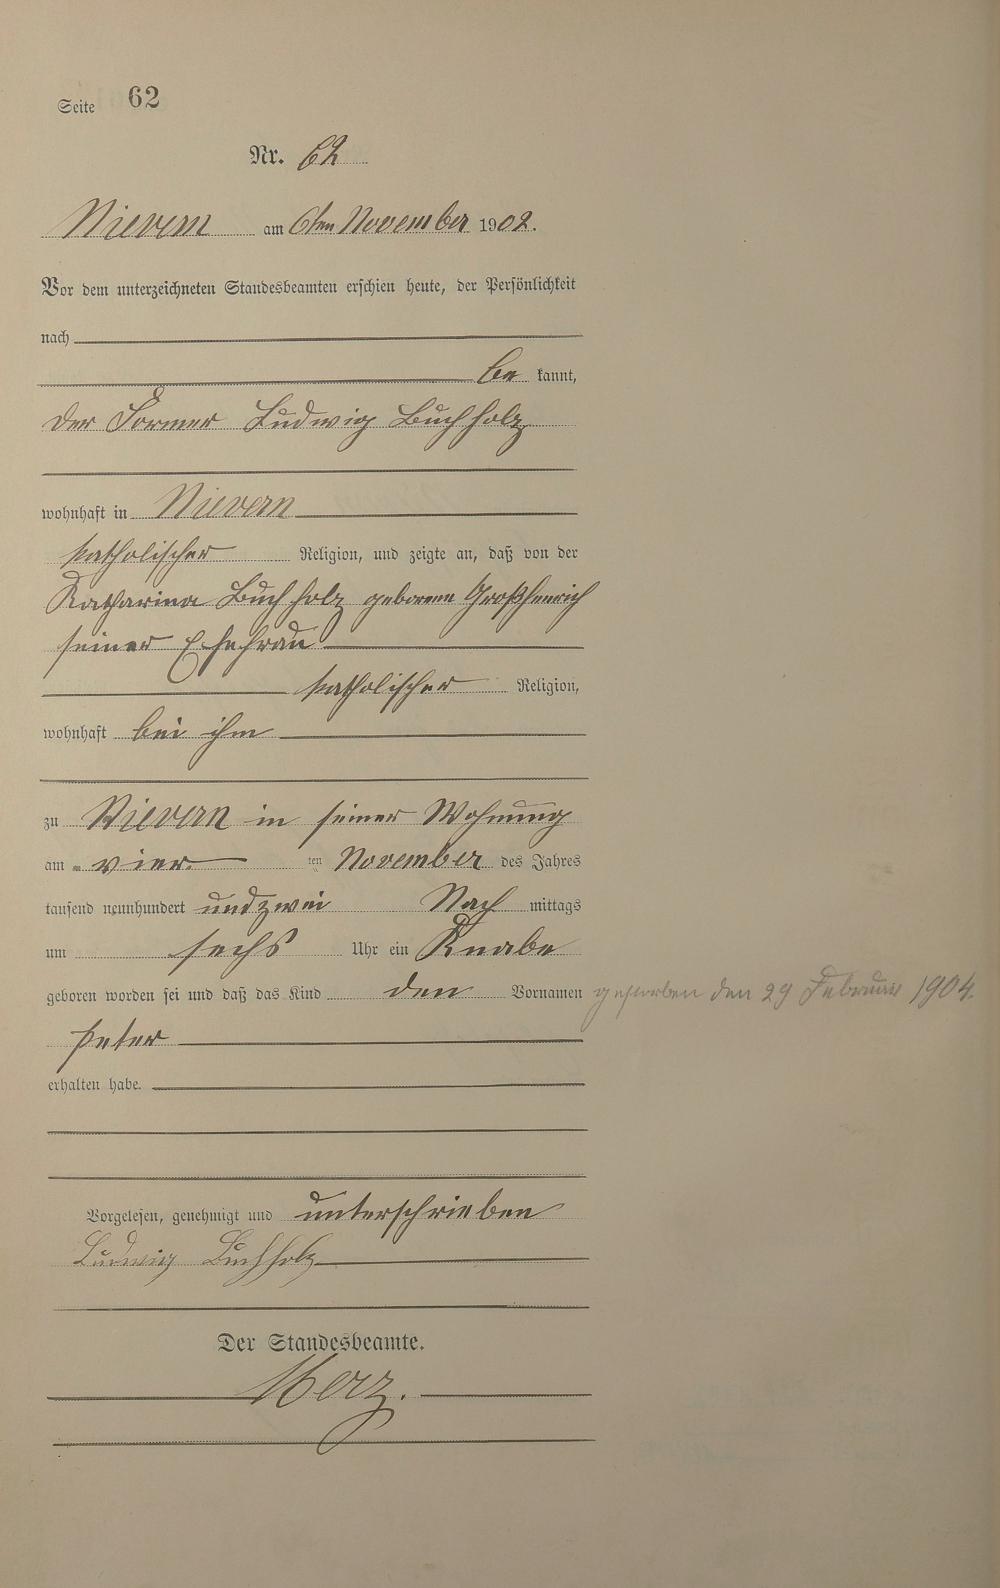 Seite 62
Nr. 62
Nievern am 6ten November 1902.
Vor dem unterzeichneten Standesbeamten erschien heute, der Persönlichkeit
nach
be kannt,
der Former Ludwig Buchholz
wohnhaft in Nievern
katholischer Religion, und zeigte an, daß von der
Katharina Buchholz geborenen Großhenrich
seiner Ehefrau
katholischer Religion,
wohnhaft bei ihm
zu Nievern in seiner Wohnung
am vier ten November des Jahres
tausend neunhundert und zwei Nach mittags
um sechs Uhr ein Knabe
geboren worden sei und daß das Kind den Vornamen gestorben den 29 Februar 1904.
Peter
erhalten habe.
Vorgelesen, genehmigt und unterschrieben
Ludwig Buchholz
Der Standesbeamte.
Merz.